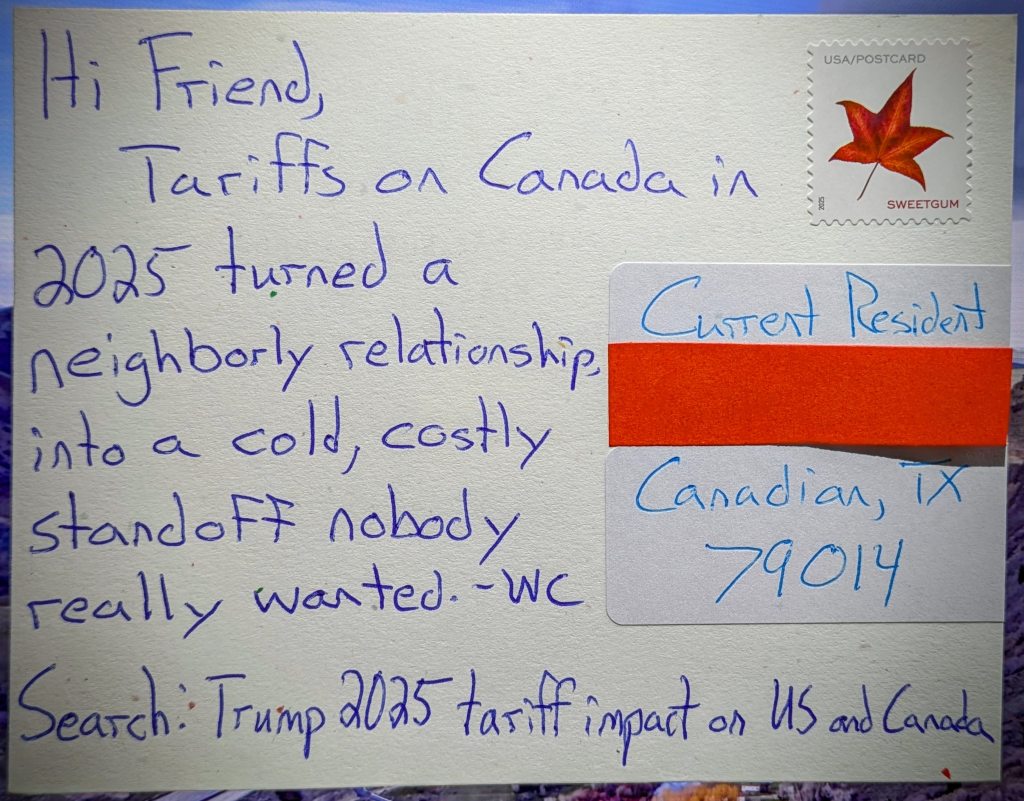 Hi Friend,
Tariffs on Canada in
2025 turned a
neighborly relationship,
into a cold, costly
standoff nobody
really wanted. -WC
Search: Trump 2025 tariff impact on US and Canada
USA/POSTCARD
2025
SWEETGUM
Current Resident
Canadian, TX
79014